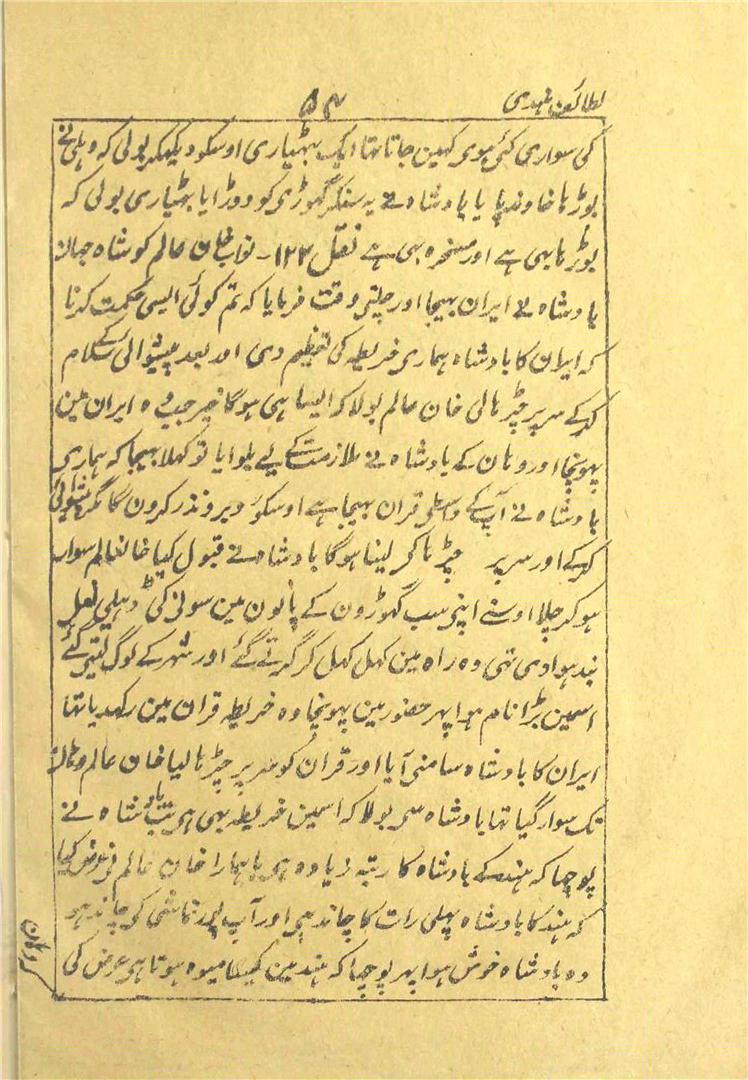 لطائف ہندی
۵۴
کی سواری کئی ہوی کہین جاتا تہا ایک بہٹیاری اوسکو دیکہکر بولی کہ دہلی نے
بوڑہا خاوند پایا بادشاہ نے یہ سنکر گہوڑی کو دوڑایا بہٹیاری بولی کہ
بوڑہا بہی ہے اور مسخرہ بہی ہے نقل ۱۲۲۔ نواب خان عالم کو شاہ جہان
بادشاہ نے ایران بہیجا اور چلتی وقت فرمایا کہ تم کوئی ایسی حکمت کرنا
کہ ایران کا بادشاہ ہماری خریطہ کی تعظیم دی اور بعد پیشوائی کے سلام
کرکے سر پر چڑہالی خان عالم بولا کہ ایسا ہی ہوگا پہر جب وہ ایران مین
پہونچا اور وہان کے بادشاہ نے ملازمت کے لیے بلوایا تو کہلا بہیجا کہ ہماری
بادشاہ نے آپ کے واسطی قران بہیجا ہے اوسکو نذر کرون گا مگر پیشوائی
کرکے اور سر پر چڑہا کر لینا ہوگا بادشاہ نے قبول کیا خانعالم سوار
ہوکر چلا اوسنے اپنی سب گہوڑون کے پانون مین سونی کی ڈہیلی نعل
بندہوا دی تہی وہ راہ مین کہل کہل کر گرتے گئے اور شہر کے لوگ لیتی گئے
اسمین بڑا نام ہوا پہر حضور مین پہونچا وہ خریطہ قران مین رکہدیا تہا
ایران کا بادشاہ سامنی آیا اور قران کو سر پر چڑہا لیا خان عالم وہان
تک سوار گیا تہا بادشاہ سی بولا کہ اسمین خریطہ بہی ہی تب بادشاہ نے
پوچہا کہ ہند کے بادشاہ کا رتبہ زیادہ ہی یا ہمارا خان عالم نے عرض کیا
کہ ہند کا بادشاہ پہلی رات کا چاند ہی اور آپ پورنماشی کی چاند ہو
وہ بادشاہ خوش ہوا پہر پوچہا کہ ہند مین کیسا میوہ ہوتا ہی عرض کی